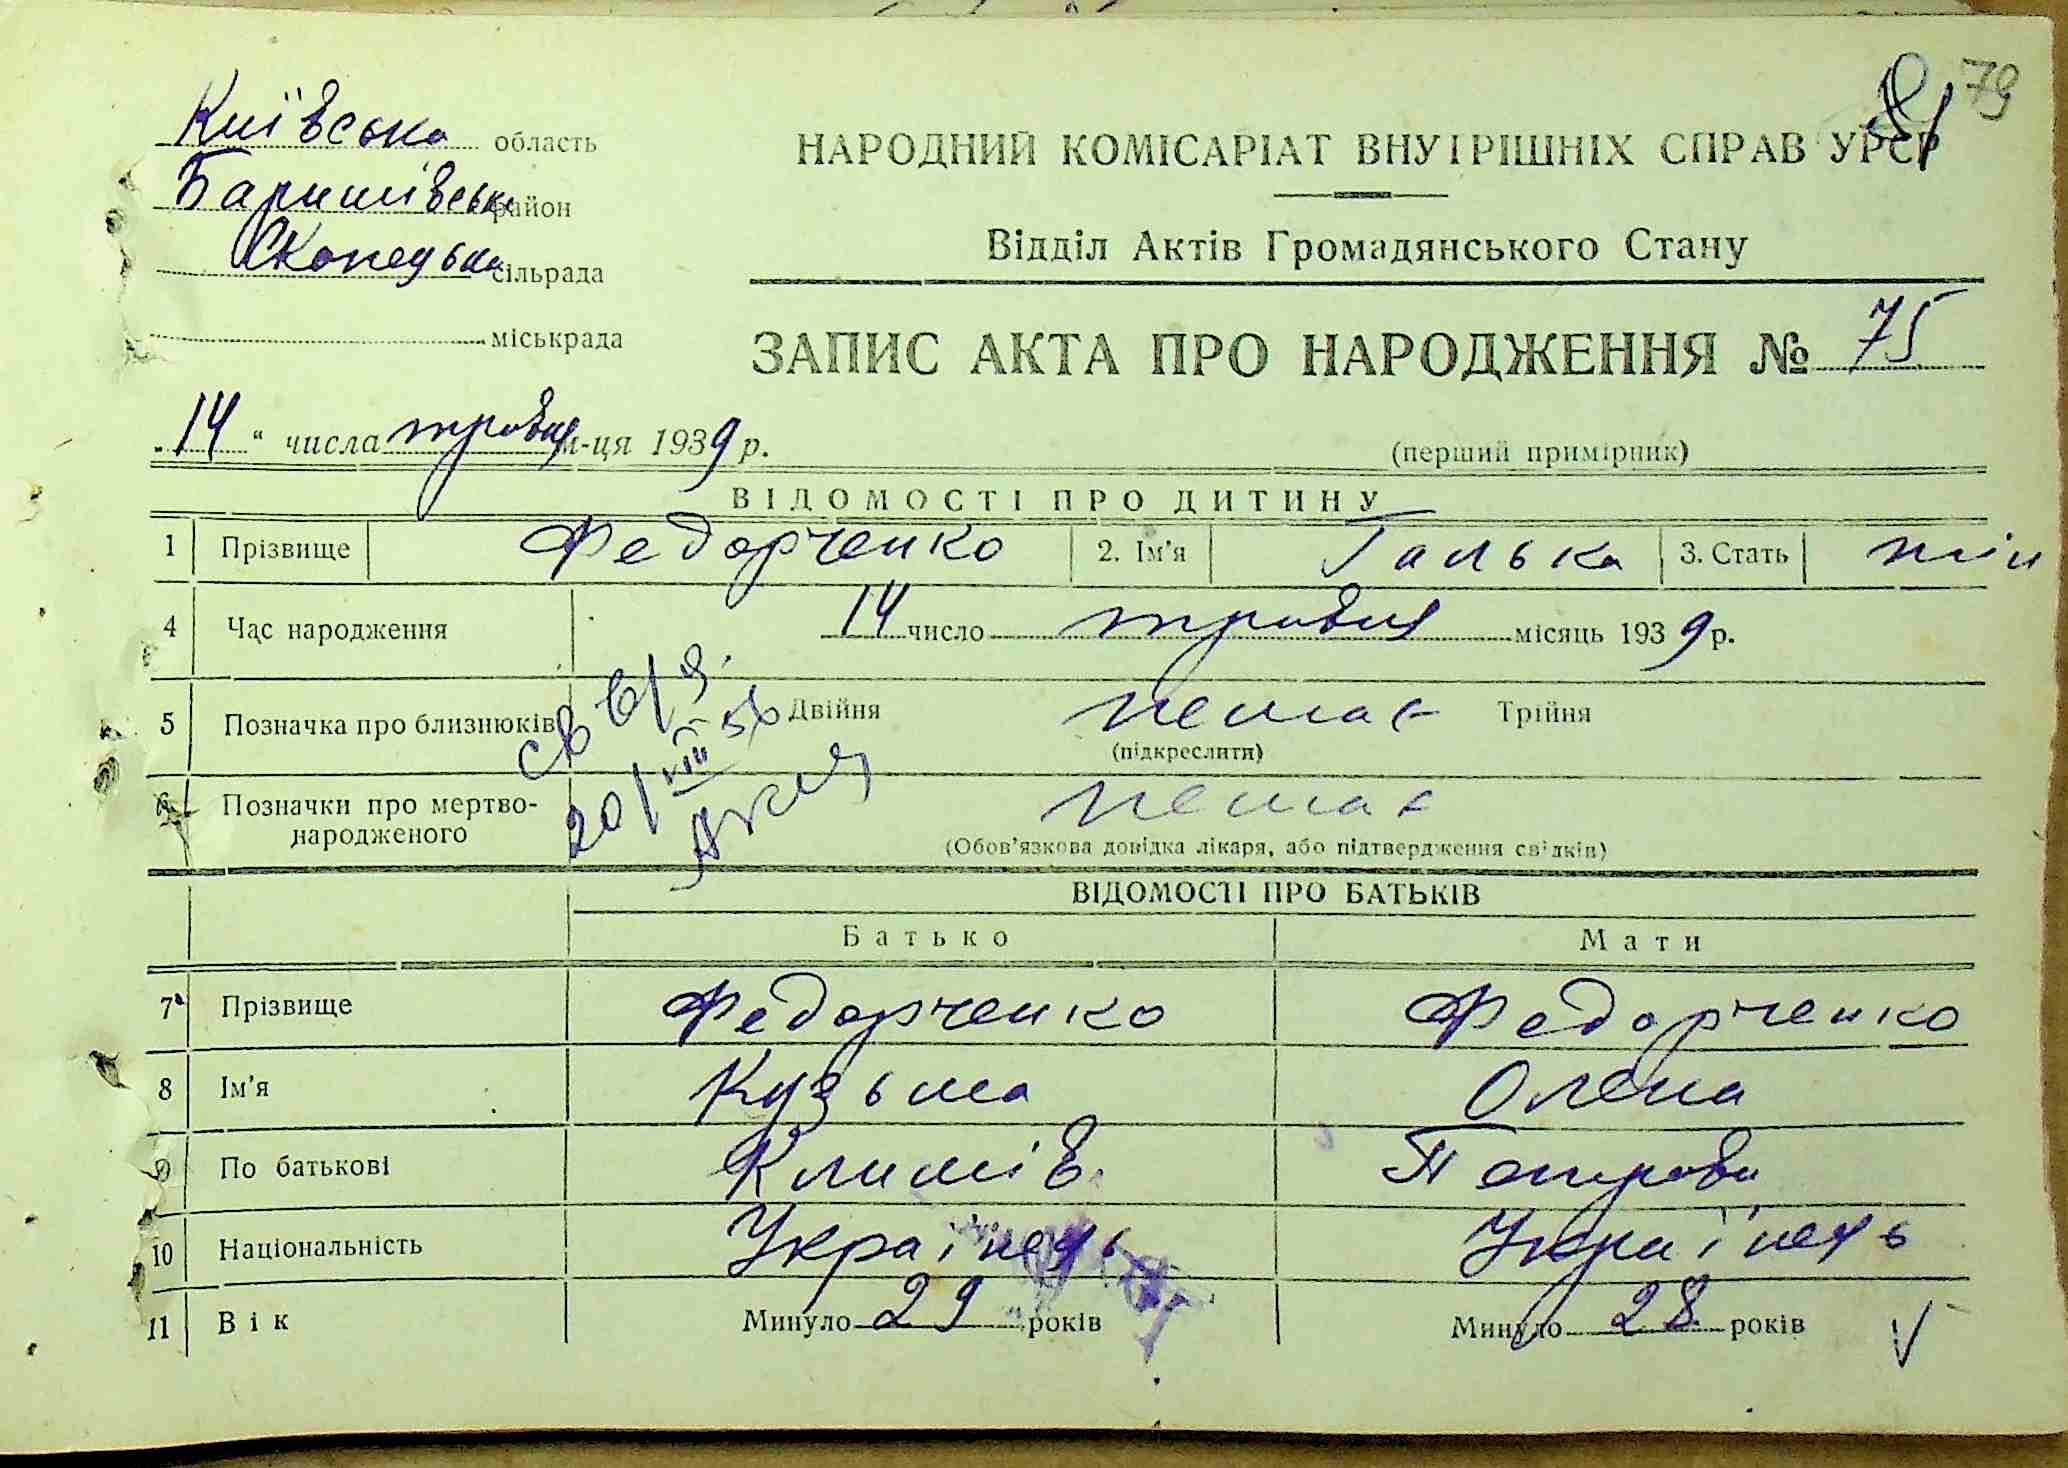 79
81
Київська область
Баришівська район
Скопецька сільрада
міськрада
НАРОДНИЙ КОМІСАРІАТ ВНУТРІШНІХ СПРАВ УРСР
Відділ Актів Громадянського Стану
ЗАПИС АКТА ПРО НАРОДЖЕННЯ № 75
„14“ числа травня м-ця 1939 р.
(перший примірник)
ВІДОМОСТІ ПРО ДИТИНУ
1 Прізвище Федорченко 2. Ім'я Галька 3. Стать жін
4 Час народження 14 число травня місяць 1939 р.
5 Позначка про близнюків Двійня немає Трійня
(підкреслити)
св в/з.
20/VIII 56
6 Позначки про мертво-
народженого немає
(Обов'язкова довідка лікаря, або підтвердження свідків)
ВІДОМОСТІ ПРО БАТЬКІВ
Батько Мати
7 Прізвище Федорченко Федорченко
8 Ім'я Кузьма Олена
9 По батькові Климів. Петрова
10 Національність Українець Українець
11 Вік Минуло 29 років Минуло 28 років